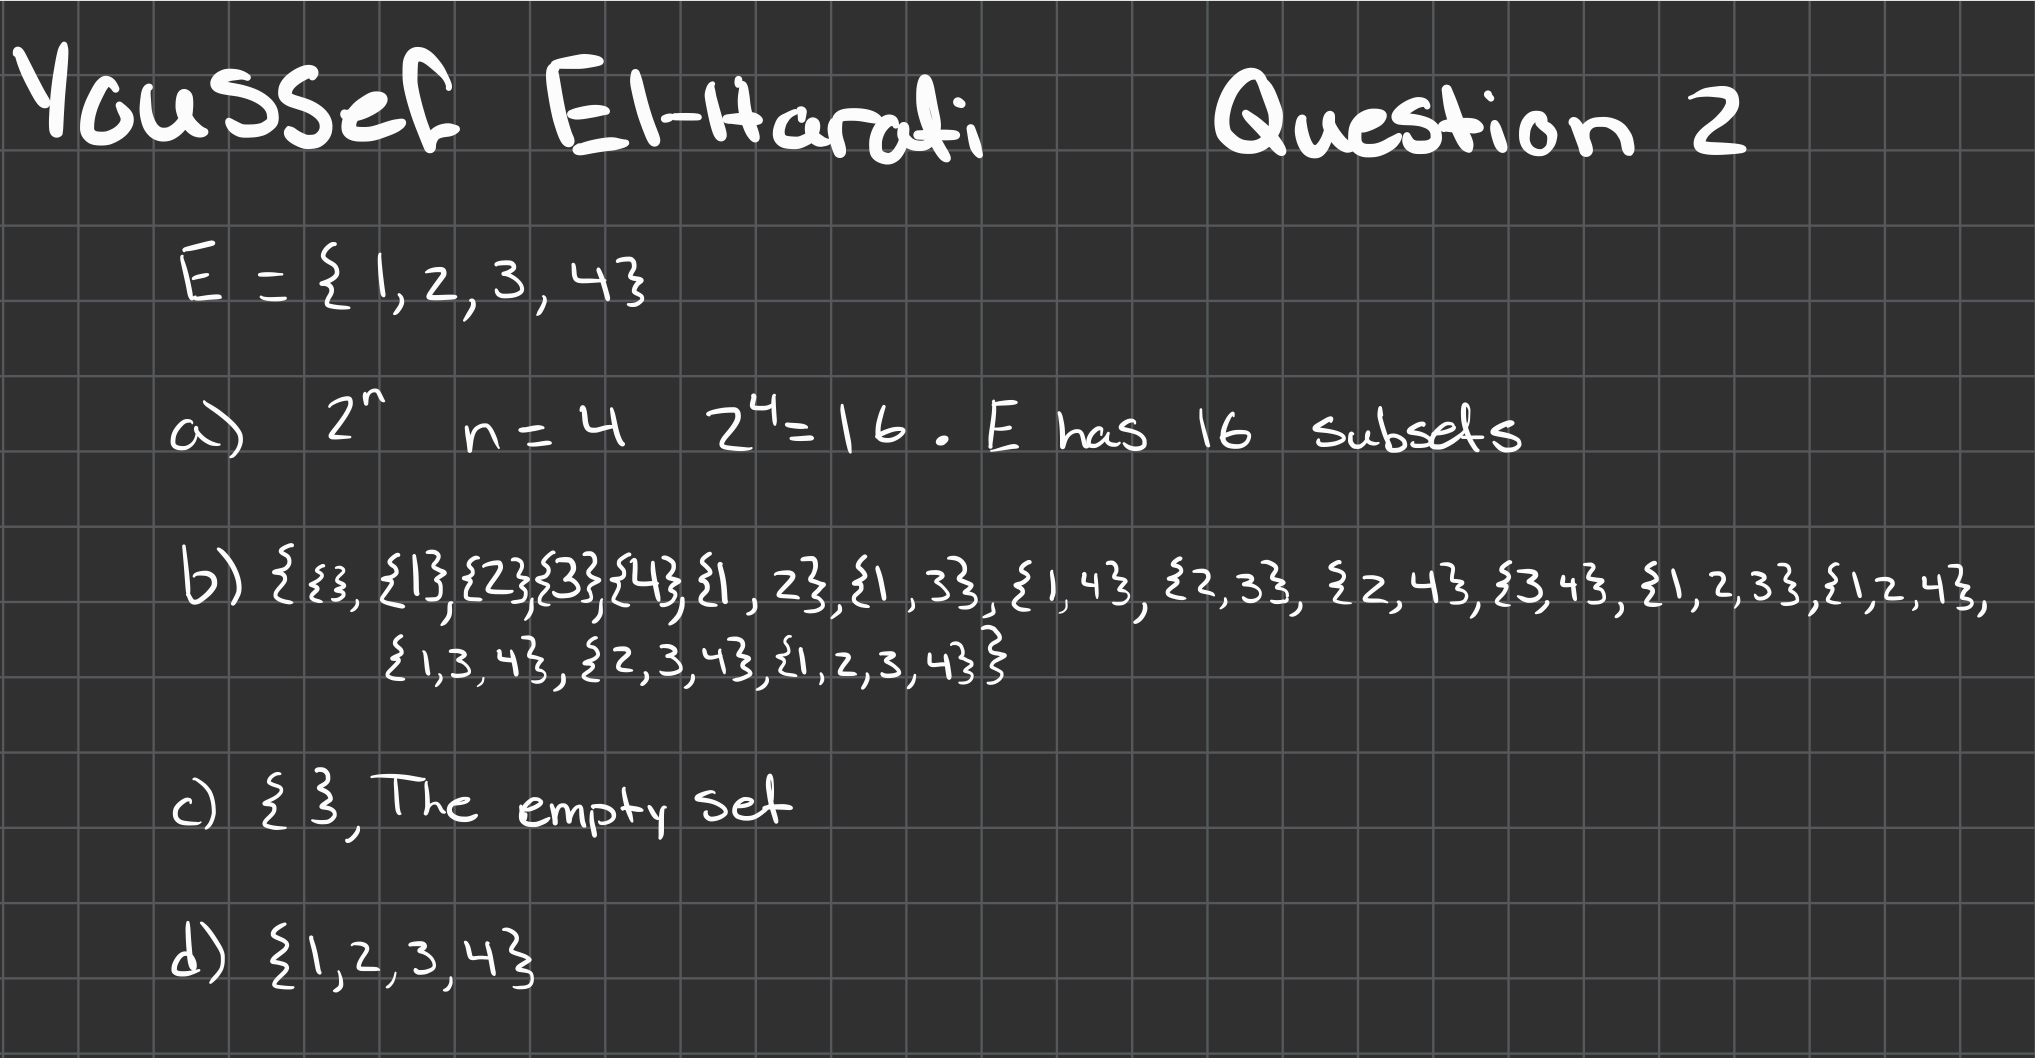 Youssef El-Harati Question 2
E = {1,2,3,4}
a) 2ⁿ n=4 2⁴=16. E has 16 subsets
b) {{}, {1},{2},{3},{4},{1,2},{1,3},{1,4},{2,3},{2,4},{3,4},{1,2,3},{1,2,4},
{1,3,4},{2,3,4},{1,2,3,4}}
c) {}, The empty set
d) {1,2,3,4}